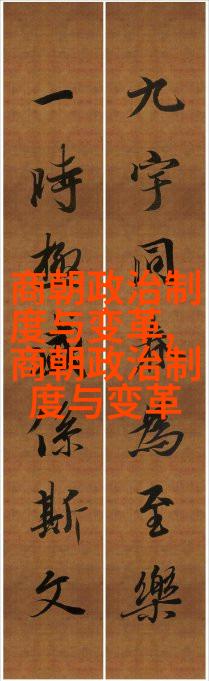 九宇同為至樂
一時係斯文
商朝政治制
度与变革，
商朝政治制
度与变革